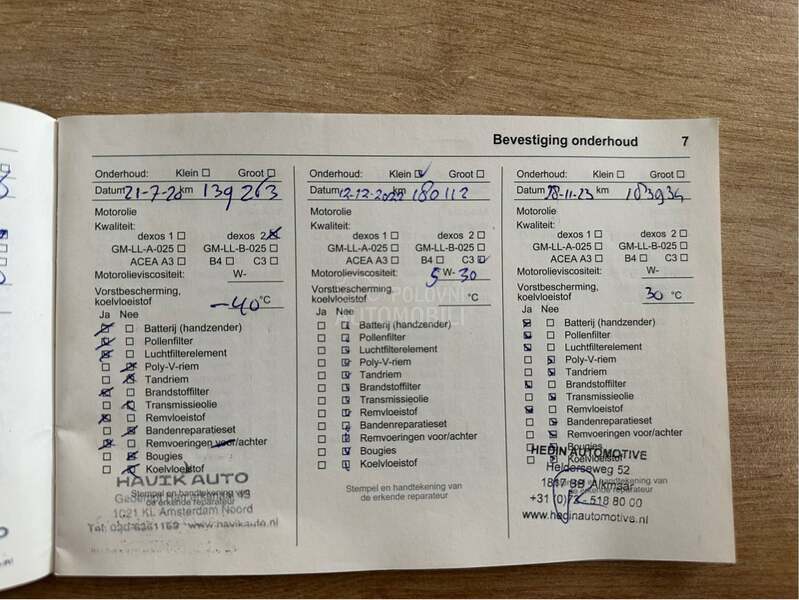 Bevestiging onderhoud 7
Onderhoud: Klein Groot
Datum 21-7-20 km 139 263
Motorolie
Kwaliteit:
dexos 1 dexos 2
GM-LL-A-025 GM-LL-B-025
ACEA A3 B4 C3
Motorolieviscositeit: W-
Vorstbescherming,
koelvloeistof -40 °C
Ja Nee
Batterij (handzender)
Pollenfilter
Luchtfilterelement
Poly-V-riem
Tandriem
Brandstoffilter
Transmissieolie
Remvloeistof
Bandenreparatieset
Remvoeringen voor/achter
Bougies
Koelvloeistof
HAVIK AUTO
Stempel en handtekening van
de erkende reparateur
1021 KL Amsterdam Noord
www.havikauto.nl
Onderhoud: Klein Groot
Datum 12-12-2022 km 180112
Motorolie
Kwaliteit:
dexos 1 dexos 2
GM-LL-A-025 GM-LL-B-025
ACEA A3 B4 C3
Motorolieviscositeit: 5 W- 30
Vorstbescherming,
koelvloeistof °C
POLOVNI
AUTOMOBILI
Ja Nee
Batterij (handzender)
Pollenfilter
Luchtfilterelement
Poly-V-riem
Tandriem
Brandstoffilter
Transmissieolie
Remvloeistof
Bandenreparatieset
Remvoeringen voor/achter
Bougies
Koelvloeistof
Stempel en handtekening van
de erkende reparateur
Onderhoud: Klein Groot
Datum 28-11-23 km 183934
Motorolie
Kwaliteit:
dexos 1 dexos 2
GM-LL-A-025 GM-LL-B-025
ACEA A3 B4 C3
Motorolieviscositeit: W-
Vorstbescherming,
koelvloeistof 30 °C
Ja Nee
Batterij (handzender)
Pollenfilter
Luchtfilterelement
Poly-V-riem
Tandriem
Brandstoffilter
Transmissieolie
Remvloeistof
Bandenreparatieset
Remvoeringen voor/achter
Bougies
Koelvloeistof
HEDIN AUTOMOTIVE
Helderseweg 52
Stempel en handtekening van
1817 BB Alkmaar
de erkende reparateur
+31 (0)72-518 80 00
www.hedinautomotive.nl